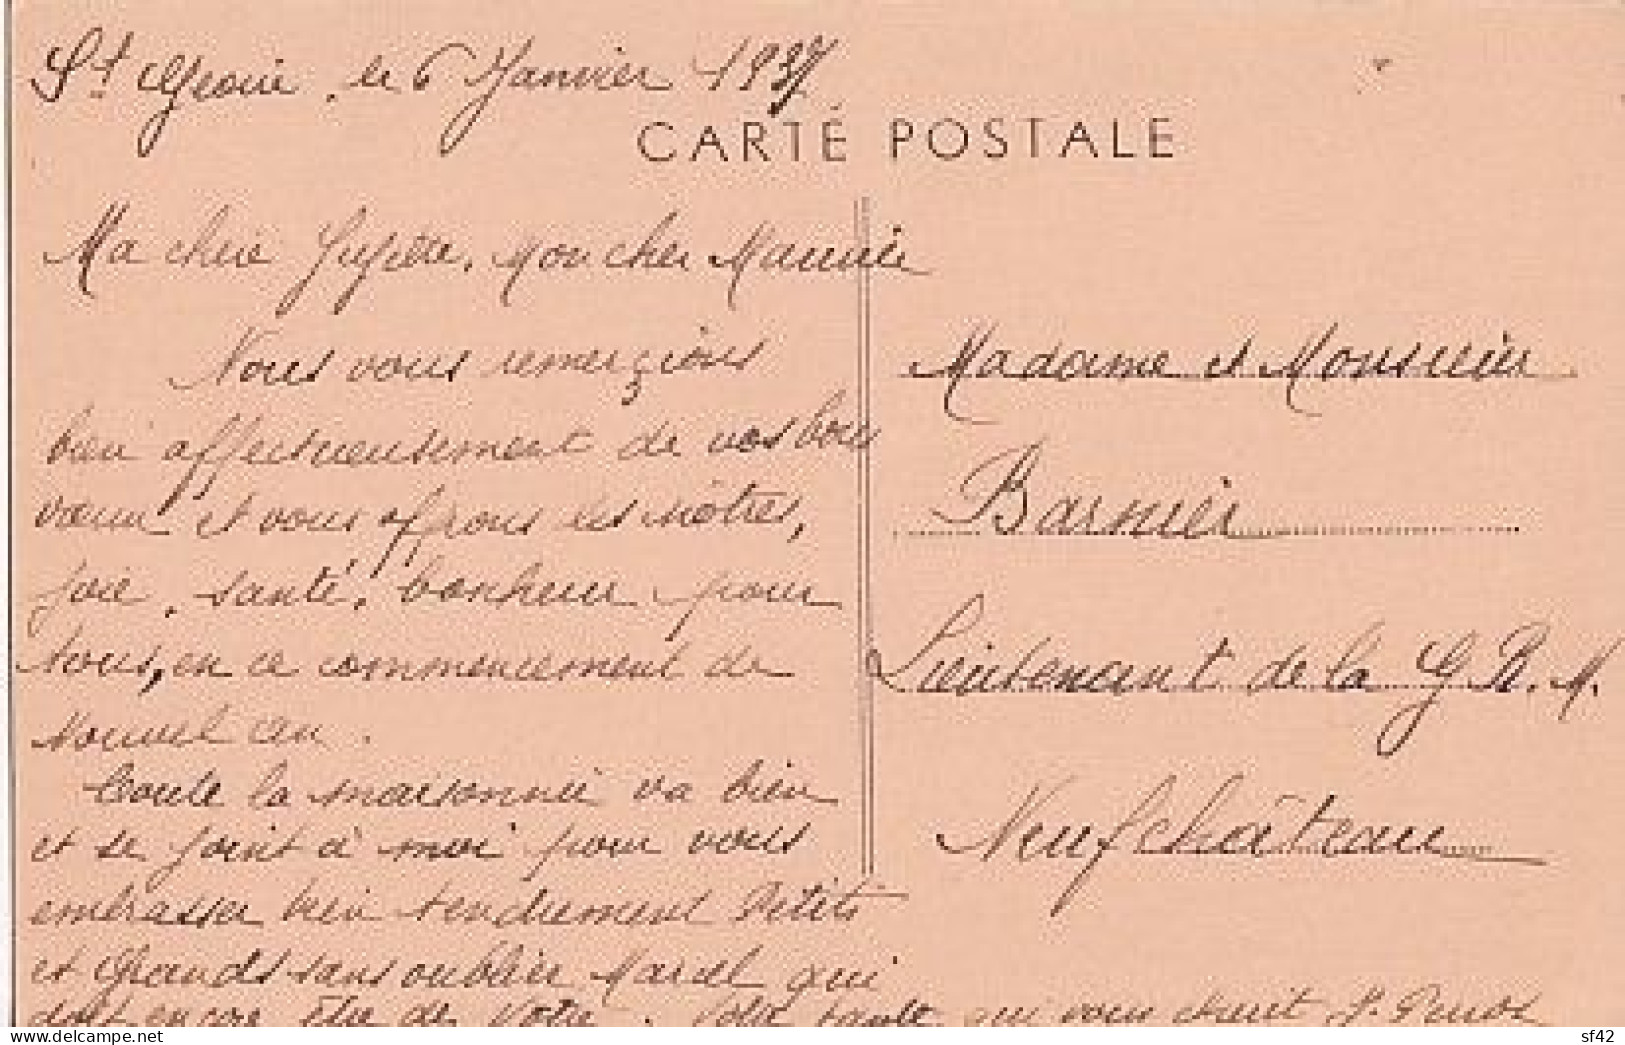 St Geoire, le 6 Janvier 1937
CARTE POSTALE
Ma chère Jupette, Mon cher Maurice
Nous vous remerçions
bien affectueusement de vos bons
vœux et vous offrons les nôtres,
joie, santé, bonheur pour
tous, en ce commencement de
nouvel an.
Toute la maisonnée va bien
et se joint à moi pour vous
embrasser bien tendrement Petits
et Grands sans oublier Marcel qui
doit encore être des vôtres. Votre tante qui vous chérit J.
Madame et Monsieur
Barnier
Lieutenant de la G.R.M.
Neufchâteau
delcampe.net
sf42